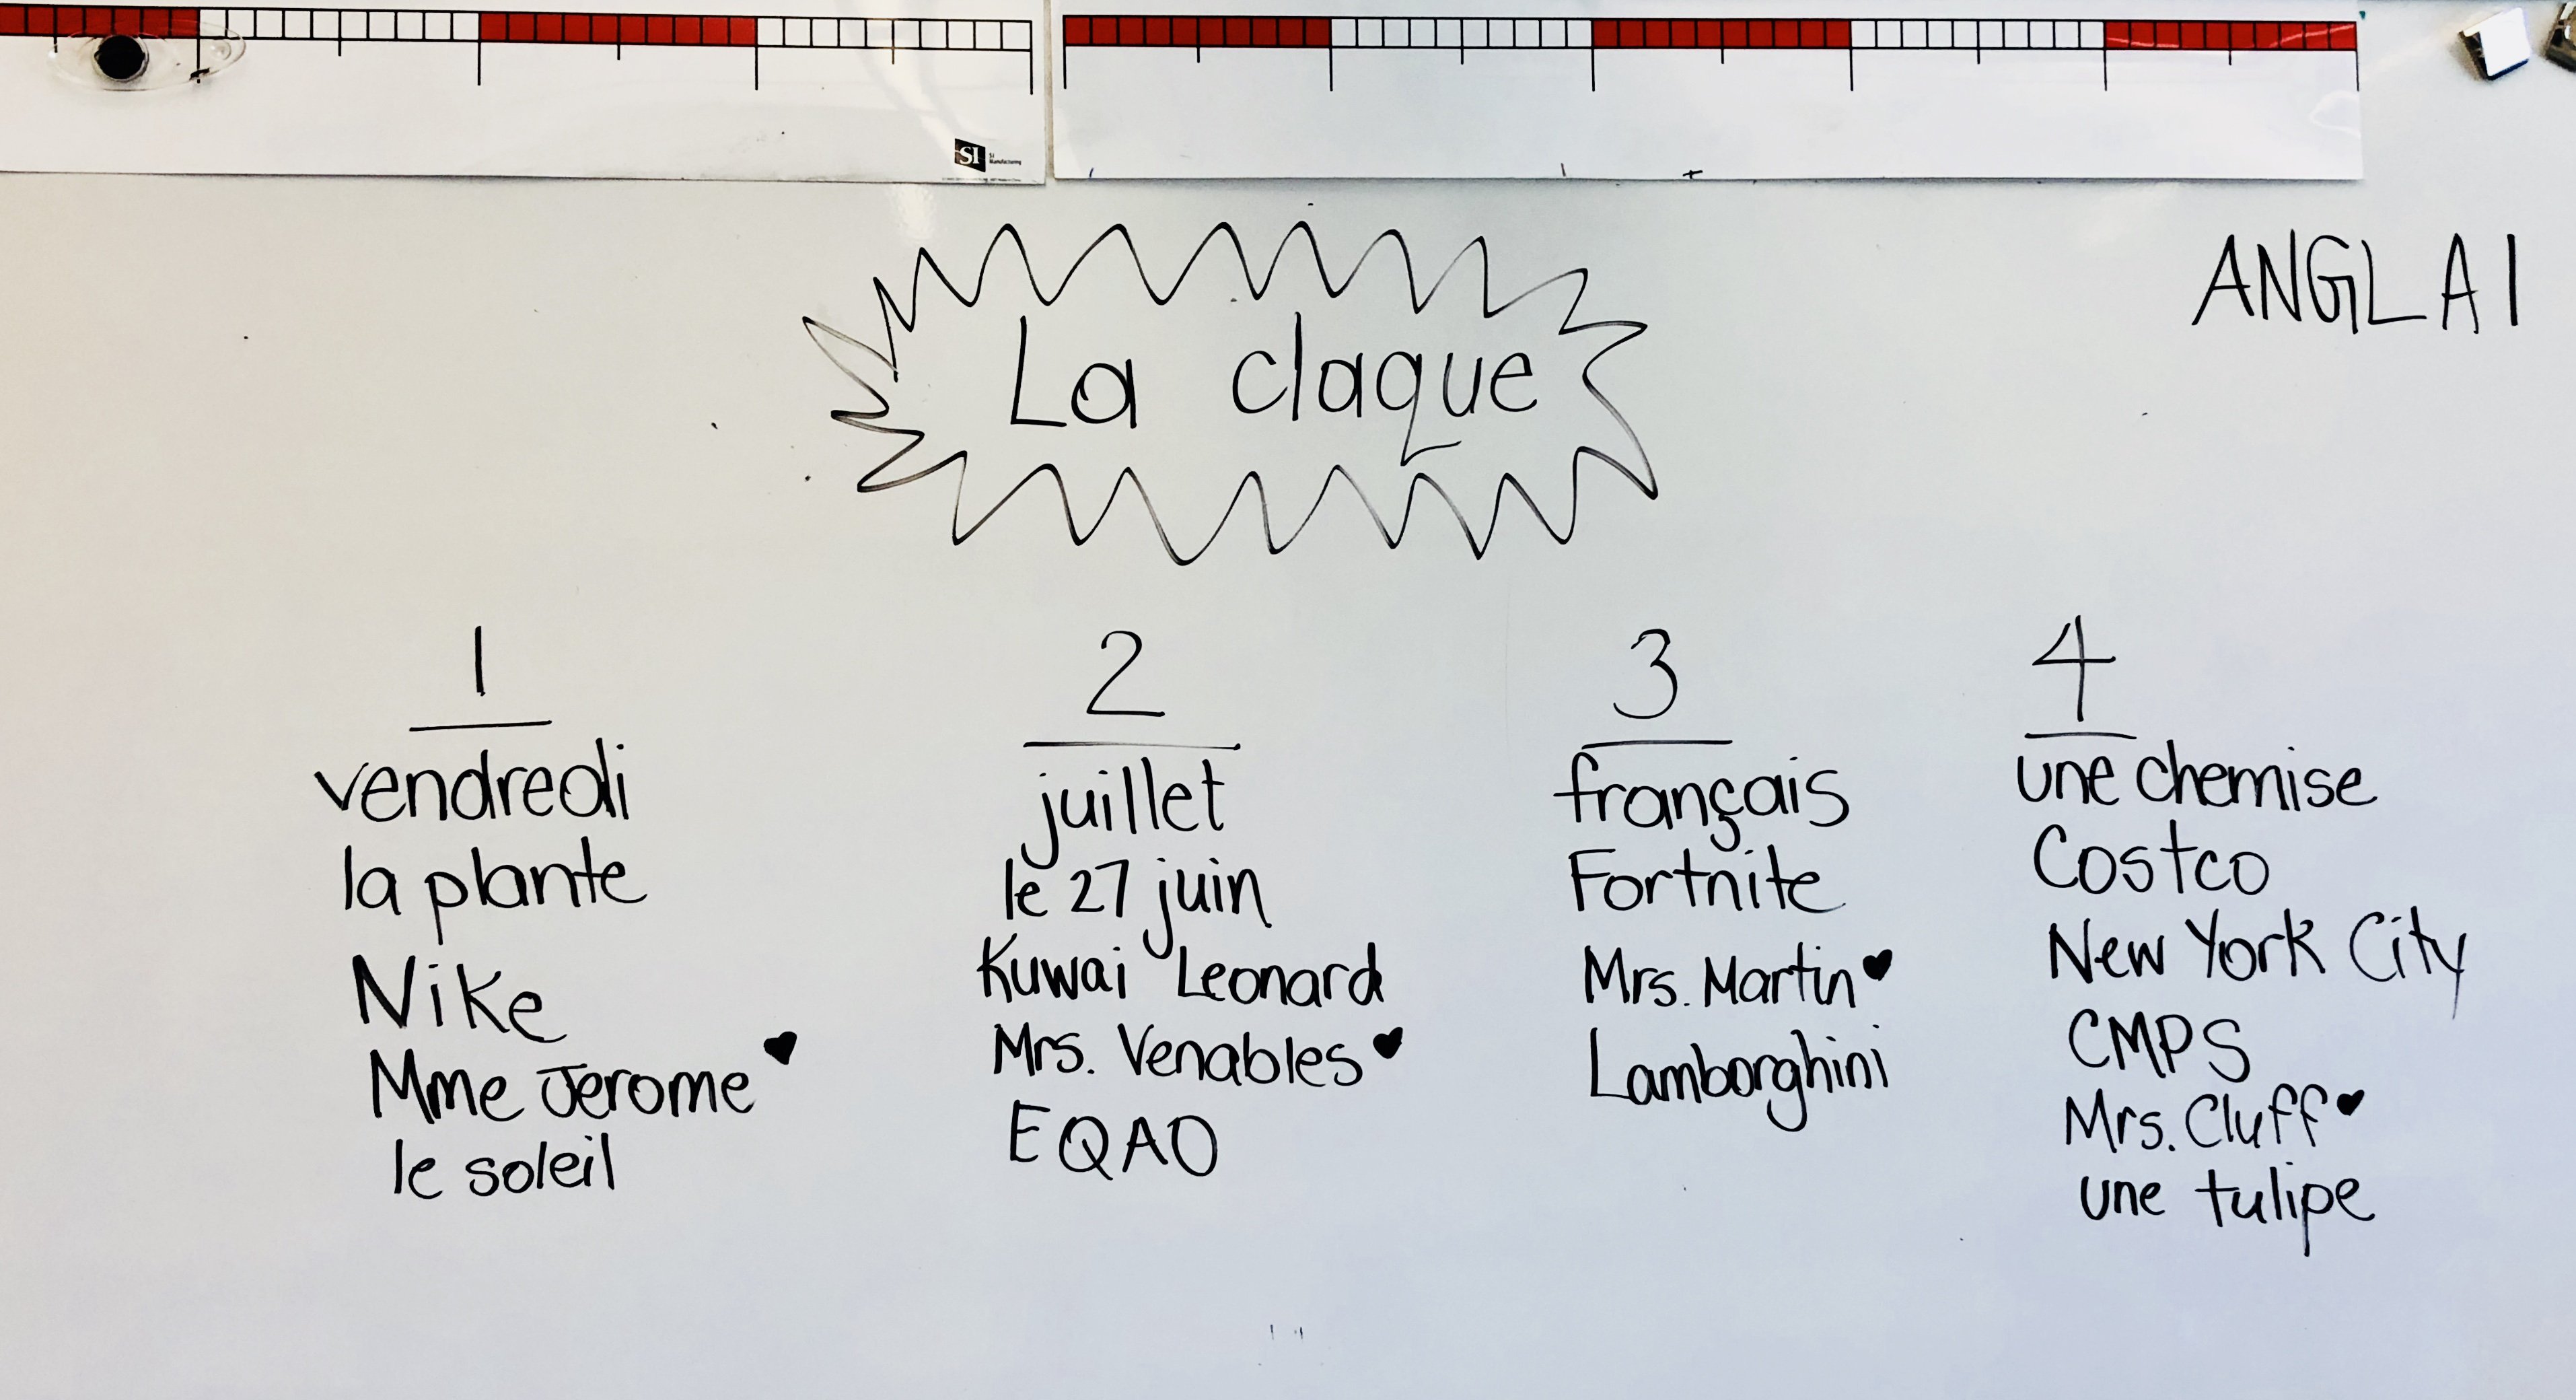 SI
SI
Manufacturing
ANGLAI
La claque
1
vendredi
la plante
Nike
Mme Jerome
le soleil
2
juillet
le 27 juin
Kuwai Leonard
Mrs. Venables
EQAO
3
français
Fortnite
Mrs. Martin
Lamborghini
4
une chemise
Costco
New York City
CMPS
Mrs. Cluff
une tulipe